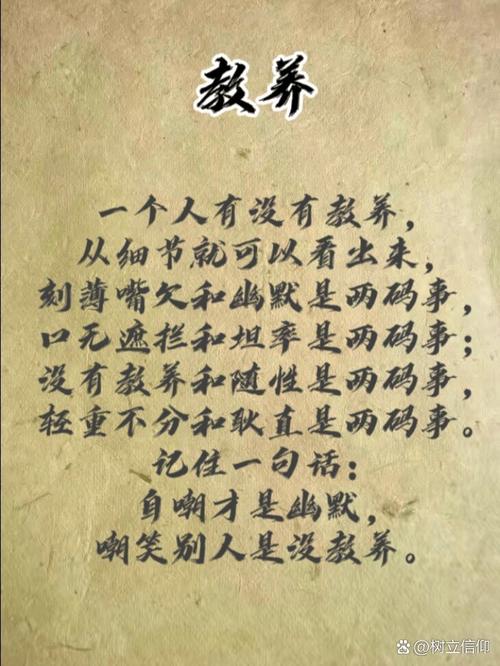 教养
一个人有没有教养，
从细节就可以看出来，
刻薄嘴欠和幽默是两码事，
口无遮拦和坦率是两码事；
没有教养和随性是两码事，
轻重不分和耿直是两码事。
记住一句话：
自嘲才是幽默，
嘲笑别人是没教养。
@树立信仰